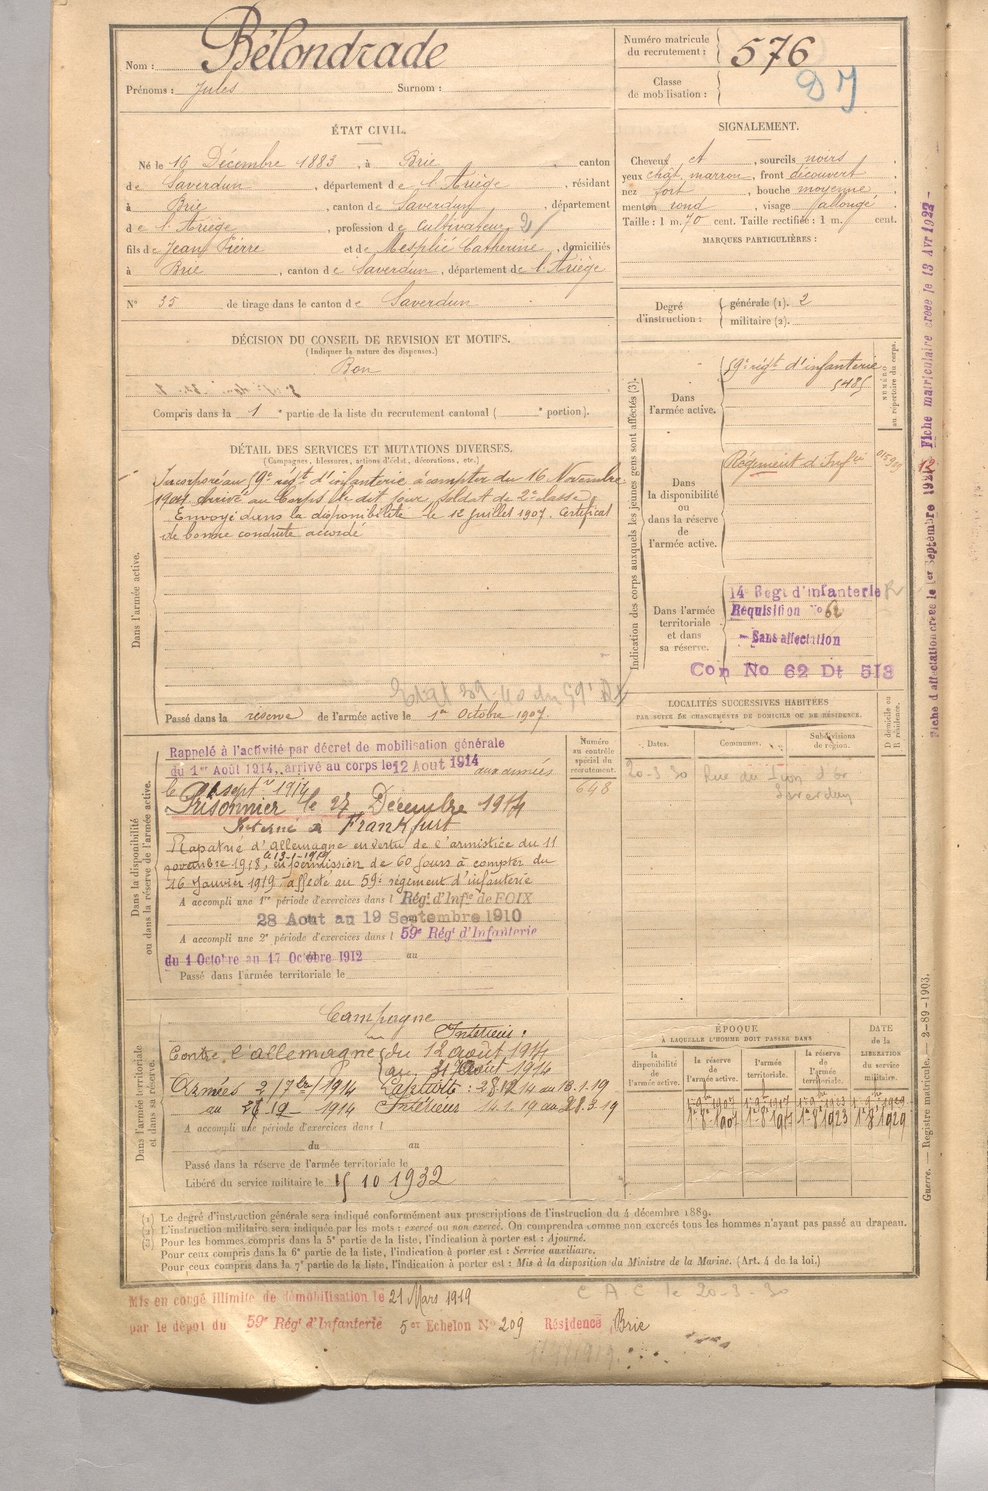 Nom : Bélondrade
Prénoms : Jules Surnom :
Numéro matricule du recrutement : 576
Classe de mobilisation :
ÉTAT CIVIL.
Né le 16 Décembre 1883, à Brie canton
de Saverdun, département de l'Ariège, résidant
à Brie, canton de Saverdun, département
de l'Ariège, profession de cultivateur
fils de Jean Pierre et de Mesplié Catherine, domiciliés
à Brie, canton de Saverdun, département de l'Ariège
N° 35 de tirage dans le canton de Saverdun
SIGNALEMENT.
Cheveux et, sourcils noirs,
yeux chat. marron, front découvert,
nez fort, bouche moyenne,
menton rond, visage allongé.
Taille : 1 m. 70 cent. Taille rectifiée : 1 m. cent.
MARQUES PARTICULIÈRES :
Degré d'instruction : générale (1). 2
militaire (2).
DÉCISION DU CONSEIL DE REVISION ET MOTIFS.
(Indiquer la nature des dispenses.)
Bon
Compris dans la 1e partie de la liste du recrutement cantonal ( e portion).
DÉTAIL DES SERVICES ET MUTATIONS DIVERSES.
(Campagnes, blessures, actions d'éclat, décorations, etc.)
Dans l'armée active.
Incorporé au 59e régt d'infanterie à compter du 16 Novembre
1904 arrivé au Corps le dit jour, soldat de 2e classe.
Envoyé dans la disponibilité le 12 juillet 1907. Certificat
de bonne conduite accordé
Passé dans la réserve de l'armée active le 1er Octobre 1907.
Indication des corps auxquels les jeunes gens sont affectés (3).
NUMÉRO au répertoire du corps.
Dans l'armée active.
59e régt d'infanterie
5485
Dans la disponibilité ou dans la réserve de l'armée active.
Régiment d'Infie
Dans l'armée territoriale et dans sa réserve.
14e Régt d'infanterie
Requisition No 62
- Sans affectation
Con No 62 Dt 513
LOCALITÉS SUCCESSIVES HABITÉES
PAR SUITE DE CHANGEMENTS DE DOMICILE OU DE RÉSIDENCE.
Dates. Communes. Subdivisions de région. D domicile ou R résidence.
20-3-30 Rue du Lion d'or
Saverdun
Dans la disponibilité ou dans la réserve de l'armée active.
Numéro au contrôle spécial du recrutement.
648
Rappelé à l'activité par décret de mobilisation générale
du 1er Août 1914, arrivé au corps le 12 Aout 1914 aux armées
le sept re 1914
Prisonnier le 27 Décembre 1914
Interné à Frankfurt
Rapatrié d'Allemagne en vertu de l'armistice du 11
novembre 1918, le 13-1-1919 en permission de 60 jours à compter du
16 Janvier 1919 affecté au 59e régiment d'infanterie
A accompli une 1re période d'exercices dans l Régt d'Infie de FOIX
28 Aout au 19 Septembre 1910
A accompli une 2e période d'exercices dans l 59e Régt d'Infanterie
du 1 Octobre au 17 Octobre 1912 au
Passé dans l'armée territoriale le
Dans l'armée territoriale et dans sa réserve.
Campagne
Contre l'allemagne Intérieur :
du 12 août 1914
au Août 1914
Armées 2/7bre/1914 Captivité : 28.12.14 au 13.1.19
au 12 1914 Intérieur 14.1.19 au 28.3.19
A accompli une période d'exercices dans l
du au
Passé dans la réserve de l'armée territoriale le
Libéré du service militaire le 15 10 1932
ÉPOQUE
À LAQUELLE L'HOMME DOIT PASSER DANS
la disponibilité de l'armée active. la réserve de l'armée active. l'armée territoriale. la réserve de l'armée territoriale. DATE de la LIBÉRATION du service militaire.
1er 8bre 1907 1er 8bre 1917 1er 8bre 1923 1er 8bre 1929
(1) Le degré d'instruction générale sera indiqué conformément aux prescriptions de l'instruction du 4 décembre 1889.
(2) L'instruction militaire sera indiquée par les mots : exercé ou non exercé. On comprendra comme non exercés tous les hommes n'ayant pas passé au drapeau.
(3) Pour les hommes compris dans la 5e partie de la liste, l'indication à porter est : Ajourné.
Pour ceux compris dans la 6e partie de la liste, l'indication à porter est : Service auxiliaire.
Pour ceux compris dans la 7e partie de la liste, l'indication à porter est : Mis à la disposition du Ministre de la Marine. (Art. 4 de la loi.)
C A C le 20-3-30
Mis en congé illimité de démobilisation le 21 Mars 1919
par le dépot du 59e Régt d'Infanterie 5e Echelon No 209 Résidence Brie
Guerre. — Registre matricule. — 2-89-1903.
Fiche d'affectation créée le 1er Septembre 1921 Fiche matriculaire créée le 13 Avr 1922 -